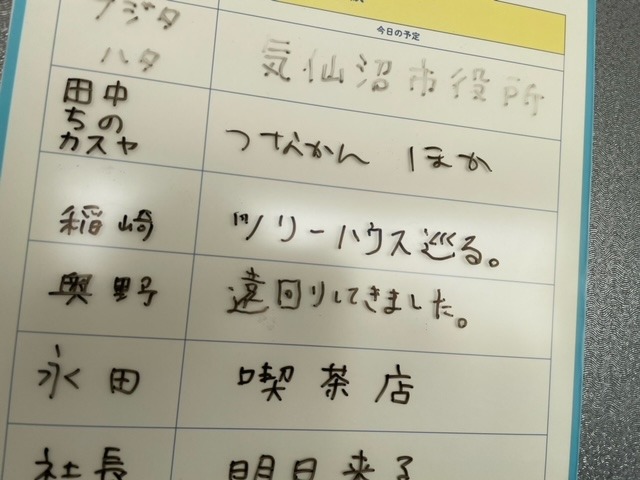 フジタ
今日の予定
ハタ
気仙沼市役所
田中
ちの
カスヤ
つなかん ほか
稲崎
ツリーハウス巡る。
奥野
遠回りしてきました。
永田
喫茶店
社長
明日来る